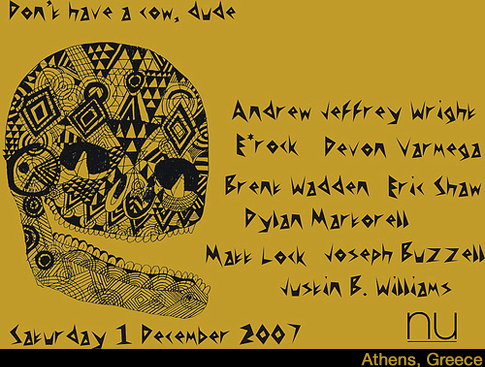 Don't have a cow, dude
Andrew Jeffrey Wright
E*rock Devon Varmega
Brent Wadden Eric Shaw
Dylan Martorell
Matt Lock Joseph Buzzell
Justin B. Williams
Saturday 1 December 2007
nu
Athens, Greece